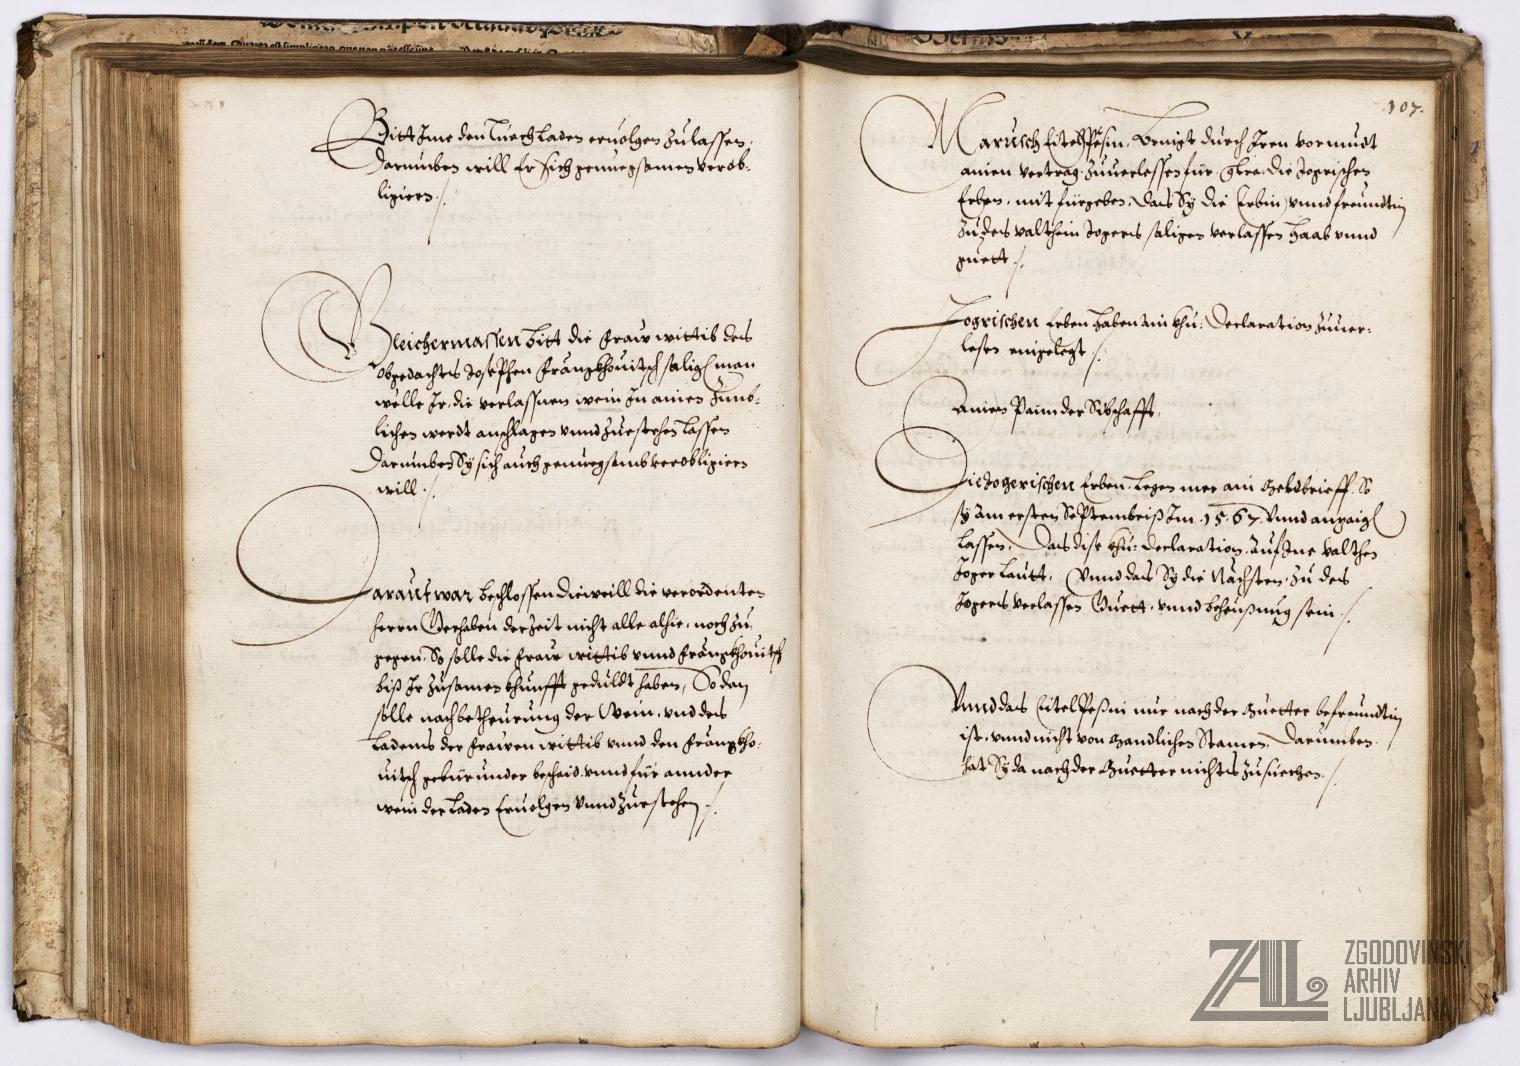 Bitt Ime den Tuech Laden eruolgen zu lassen,
Darumben will Er sich genuegsamen verob-
ligiern ./.
Gleichermassen bitt die Fraw wittib des
obgedachts Josephen Frangkhouitsch salig man
welle Ir, die verlassnen wein In ainen zimb-
lichen werdt anschlagen vnnd zuestehen lassen
Darumben Sy sich auch genuegsamb verobligiern
will ./.
Darauf war beschlossen dieweill die verordenten
herrn Gerhaben derzeit nicht alle alhie, noch zu
gegen, So solle die Fraw wittib vnnd Frangkhouitsch
biß Ir zusamen khunfft geduldt haben, So dan
solle nach betheurung der Wein, vnd des
Ladens der Frawen wittib vnnd den Frangkho-
uitsch gebürunder bescheid vnnd für annder
wein der Laden Eruolgen vnnd zuestehen ./.
107.
Marusch Eitelpeßin, bringt durch Iren vormundt
ainen vertrag zuuerlessen für, die Jogrischen
Erben, mit fürgeben, Das Sy die Erbin vnnd freundtin
zu des valthein Jogers saligen verlassen haab vnnd
guett ./.
Jogrischen Erben haben ain khu: Declaration zuuer-
lesen eingelegt ./.
Ainen Paim der Sibschafft,
Die Jogerischen Erben, Legen mer ain Geltbrieff, So
sy am ersten Septembris Im 1567. vnnd anzaign
lassen, Das dise khu: Declaration, auf Ine valthen
Joger lautt, Vnnd das Sy die Nächsten, zu des
Jogers verlassen Guett, vnnd behaußung sein ./.
Vnnd das Eitelpeßin nur nach der Muetter befreundtin
ist, vnnd nicht von Mandlichen Stamen, Darumben
hat Sy da nach der Muetter nichts zu suechen ./.
ZAL
ZGODOVINSKI
ARHIV
LJUBLJANA